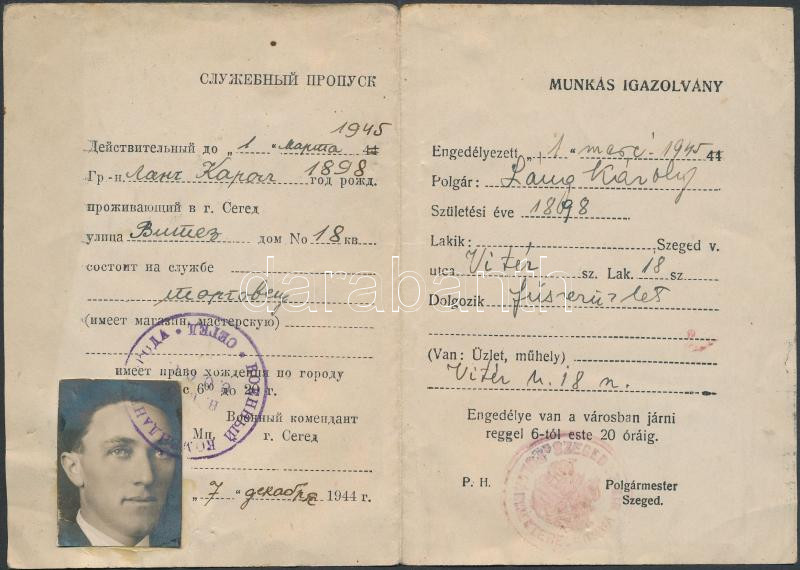 СЛУЖЕБНЫЙ ПРОПУСК
1945
Действительный до „ 1 “ марта 44
Гр-н. Ланг Карол 1898 год рожд.
проживающий в г. Сегед
улица Витез дом No 18 кв.
состоит на службе
торговец
(имеет магазин, мастерскую)
имеет право хождения по городу
с 6⁰⁰ до 20 г.
Военный комендант
г. Сегед
„ 7 “ декабря 1944 г.
ВОЕННЫЙ КОМЕНДАНТ ГОРОДА • СЕГЕД •
MUNKÁS IGAZOLVÁNY
Engedélyezett „ 1 “ marc. 1945 44
Polgár: Láng Károly
Születési éve 1898
Lakik: Szeged v.
utca Vitéz sz. Lak. 18 sz
Dolgozik fűszerüzlet
(Van: Üzlet, műhely)
Vitéz u. 18 n.
Engedélye van a városban járni
reggel 6-tól este 20 óráig.
P. H.
Polgármester
Szeged.
SZEGED
darabanth